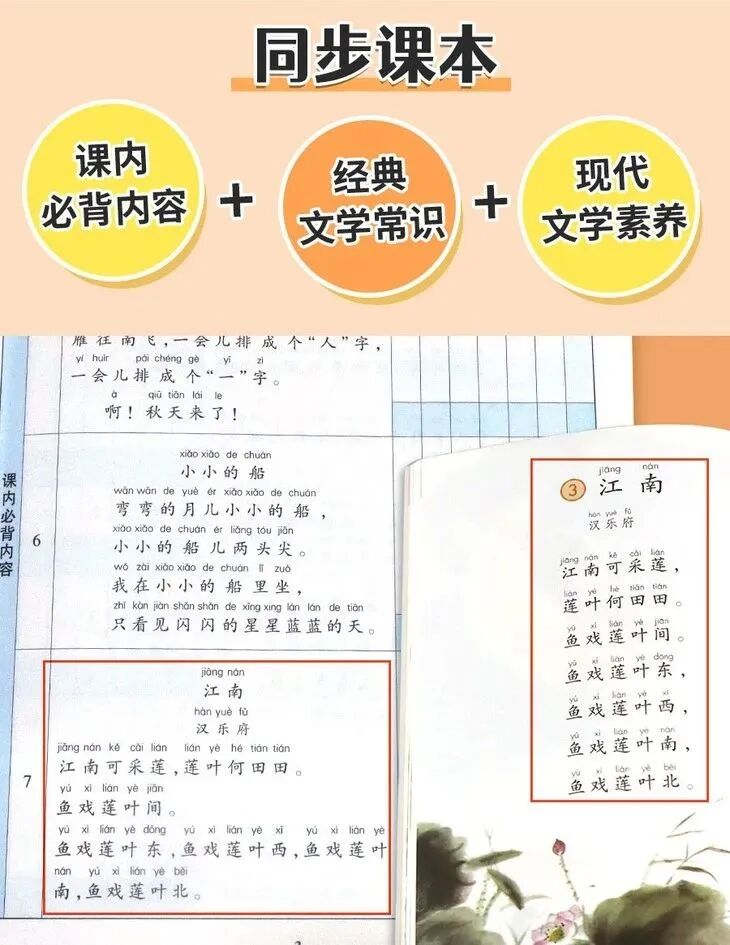 同步课本
课内
必背内容
+
经典
文学常识
+
现代
文学素养
雁往南飞，一会儿排成个“人”字，
yí huìr pái chéng gè yī zì
一会儿排成个“一”字。
à qiū tiān lái le
啊！秋天来了！
课内必背内容
6
xiǎo xiǎo de chuán
小小的船
wān wān de yuè ér xiǎo xiǎo de chuán
弯弯的月儿小小的船，
xiǎo xiǎo de chuán ér liǎng tóu jiān
小小的船儿两头尖。
wǒ zài xiǎo xiǎo de chuán lǐ zuò
我在小小的船里坐，
zhǐ kàn jiàn shǎn shǎn de xīng xing lán lán de tiān
只看见闪闪的星星蓝蓝的天。
7
jiāng nán
江南
hàn yuè fǔ
汉乐府
jiāng nán kě cǎi lián lián yè hé tián tián
江南可采莲，莲叶何田田。
yú xì lián yè jiān
鱼戏莲叶间。
yú xì lián yè dōng yú xì lián yè xī yú xì lián yè
鱼戏莲叶东，鱼戏莲叶西，鱼戏莲叶
nán yú xì lián yè běi
南，鱼戏莲叶北。
jiāng nán
3 江南
hàn yuè fǔ
汉乐府
jiāng nán kě cǎi lián
江南可采莲，
lián yè hé tián tián
莲叶何田田。
yú xì lián yè jiān
鱼戏莲叶间。
yú xì lián yè dōng
鱼戏莲叶东，
yú xì lián yè xī
鱼戏莲叶西，
yú xì lián yè nán
鱼戏莲叶南，
yú xì lián yè běi
鱼戏莲叶北。